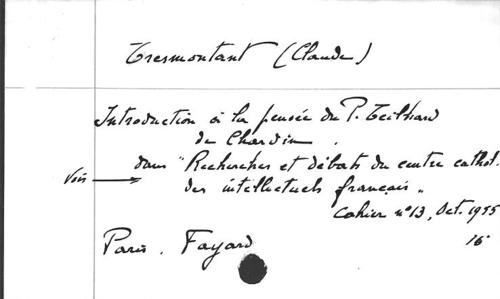 Tresmontant (Claude)
Introduction à la pensée du P. Teilhard
de Chardin.
dans "Recherches et débats du centre cathol.
Voir → des intellectuels français"
Cahier n° 13, Oct. 1955
Paris. Fayard 16°